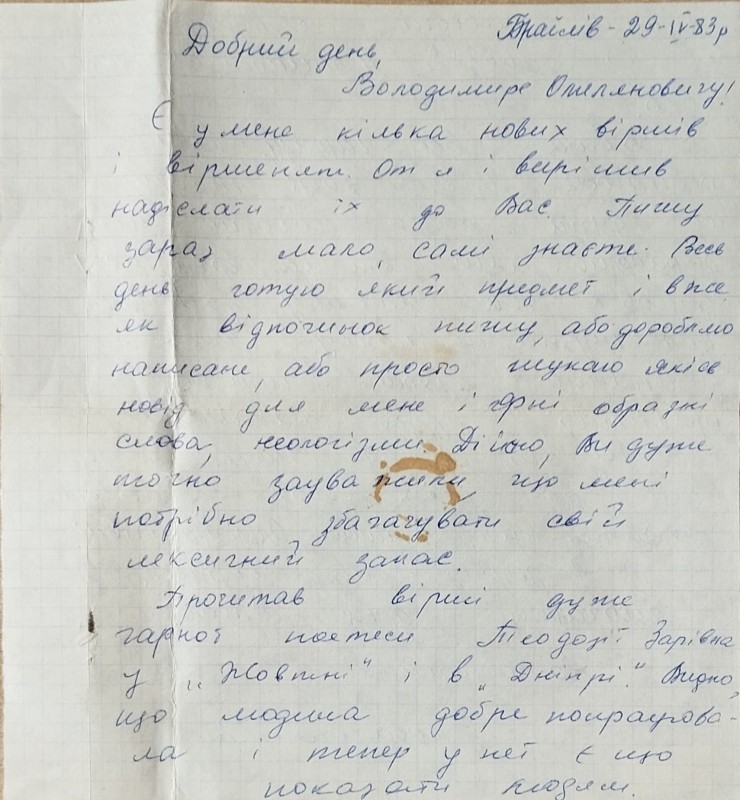 Браїлів - 29-IV-83р
Добрий день,
Володимире Омеляновичу!
Є у мене кілька нових віршів
і віршенят. От я і вирішив
надіслати їх до Вас. Пишу
зараз мало, самі знаєте. Весь
день готую який предмет і вже
як відпочинок пишу, або доробляю
написане, або просто шукаю якісь
нові для мене і гарні образні
слова, неологізми. Дійсно, Ви дуже
точно зауважили, що мені
потрібно збагачувати свій
лексичний запас.
Прочитав вірші дуже
гарної поетеси Теодозії Зарівна
у „Жовтні" і в „Дніпрі". Видно,
що людина добре попрацюва-
ла і тепер у неї є що
показати людям.